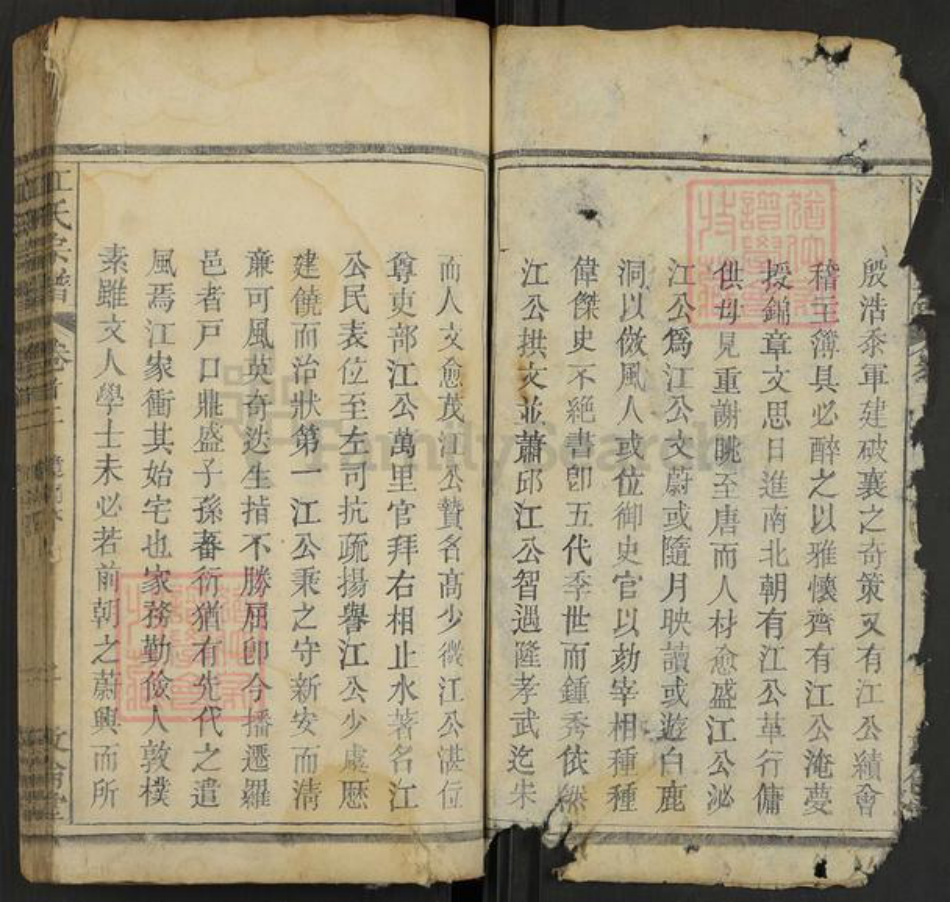 殷浩叅軍建破襄之奇策又有江公績會
稽主簿具必醉之以雅懷齊有江公淹夢
授錦章文思日進南北朝有江公革行傭
供母見重謝眺至唐而人材愈盛江公泌
江公爲江公文蔚或隨月映讀或遊白鹿
洞以倣風人或位御史官以劾宰相種種
偉傑史不絶書卽五代季世而鍾秀依然
江公拱文並蕭邱江公智遇隆孝武迄宋
而人文愈茂江公贊名高少微江公湛位
尊吏部江公萬里官拜右相止水著名江
公民表位至左司抗疏揚譽江公少虞歷
建饒而治狀第一江公秉之守新安而淸
亷可風英奇迭生指不勝屈卽今播遷羅
邑者戸口鼎盛子孫蕃衍猶有先代之遺
風焉江家衝其始宅也家務勤儉人敦樸
素雖文人學士未必若前朝之蔚興而所
江氏宗譜 卷首
FamilySearch